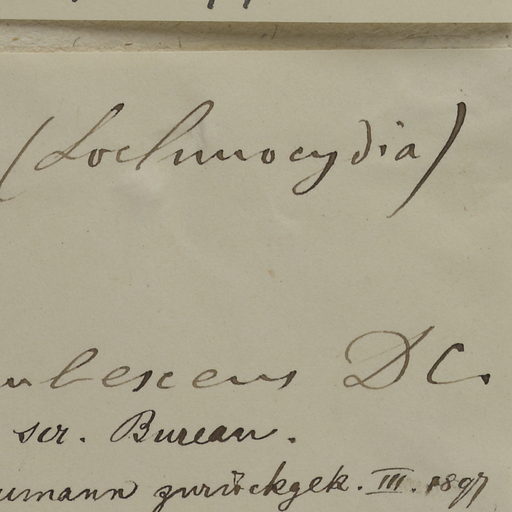 (Lochmocydia)
ubescens DC.
scr. Bureau.
umann zurückgek. III. 1897